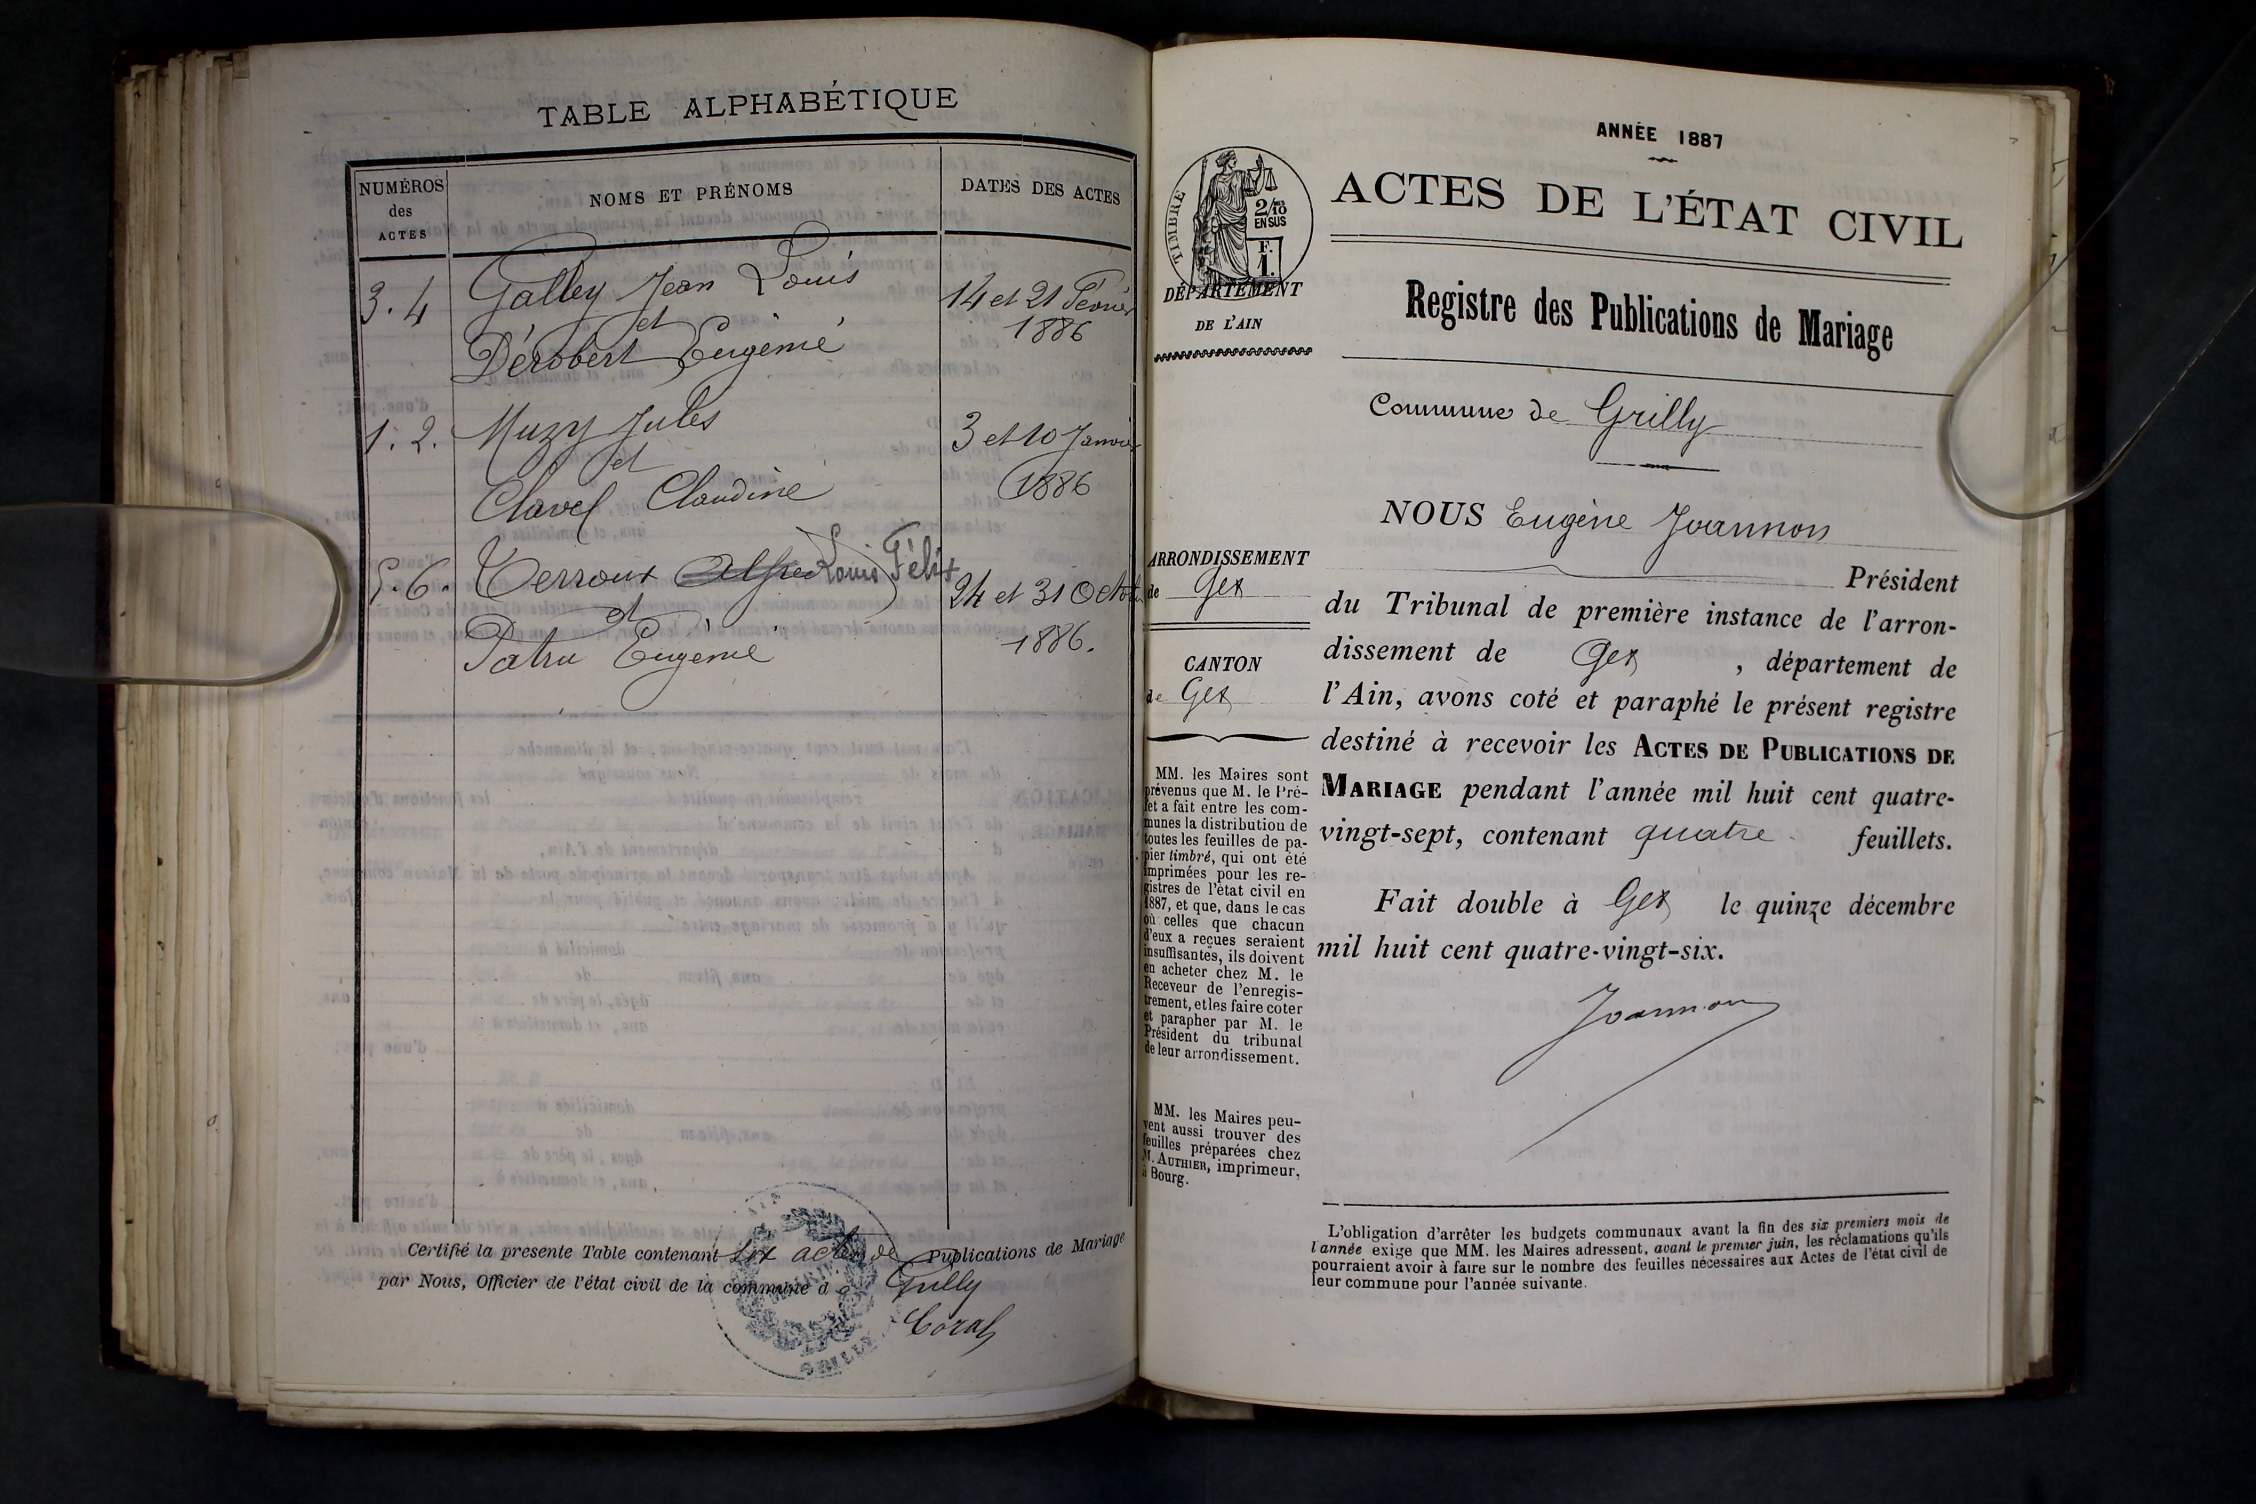 TABLE ALPHABÉTIQUE
NUMÉROS
des
ACTES
NOMS ET PRÉNOMS
DATES DES ACTES
3. 4 Galley Jean Louis 14 et 21 Février
et 1886
Dérobert Eugénie
1. 2. Muzy Jules 3 et 10 Janvier
et 1886
Clavel Claudine
5. 6. Terroux Alfred Louis Félix 24 et 31 Octobre
et 1886.
Patru Eugénie
Certifié la présente Table contenant six actes de Publications de Mariage
par Nous, Officier de l'état civil de la commune de Grilly
GRILLY
ANNÉE 1887
ACTES DE L'ÉTAT CIVIL
TIMBRE
2/10
EN SUS
F.
1.
DÉPARTEMENT
DE L'AIN
Registre des Publications de Mariage
Commune de Grilly
NOUS Eugène Joannon
Président
du Tribunal de première instance de l'arron-
dissement de Gex, département de
l'Ain, avons coté et paraphé le présent registre
destiné à recevoir les ACTES DE PUBLICATIONS DE
MARIAGE pendant l'année mil huit cent quatre-
vingt-sept, contenant quatre feuillets.
Fait double à Gex le quinze décembre
mil huit cent quatre-vingt-six.
Joannon
ARRONDISSEMENT
de Gex
CANTON
de Gex
MM. les Maires sont
prévenus que M. le Pré-
fet a fait entre les com-
munes la distribution de
toutes les feuilles de pa-
pier timbré, qui ont été
imprimées pour les re-
gistres de l'état civil en
1887, et que, dans le cas
où celles que chacun
d'eux a reçues seraient
insuffisantes, ils doivent
en acheter chez M. le
Receveur de l'enregis-
trement, et les faire coter
et parapher par M. le
Président du tribunal
de leur arrondissement.
MM. les Maires peu-
vent aussi trouver des
feuilles préparées chez
M. AUTHIER, imprimeur,
à Bourg.
L'obligation d'arrêter les budgets communaux avant la fin des six premiers mois de
l'année exige que MM. les Maires adressent, avant le premier juin, les réclamations qu'ils
pourraient avoir à faire sur le nombre des feuilles nécessaires aux Actes de l'état civil de
leur commune pour l'année suivante.